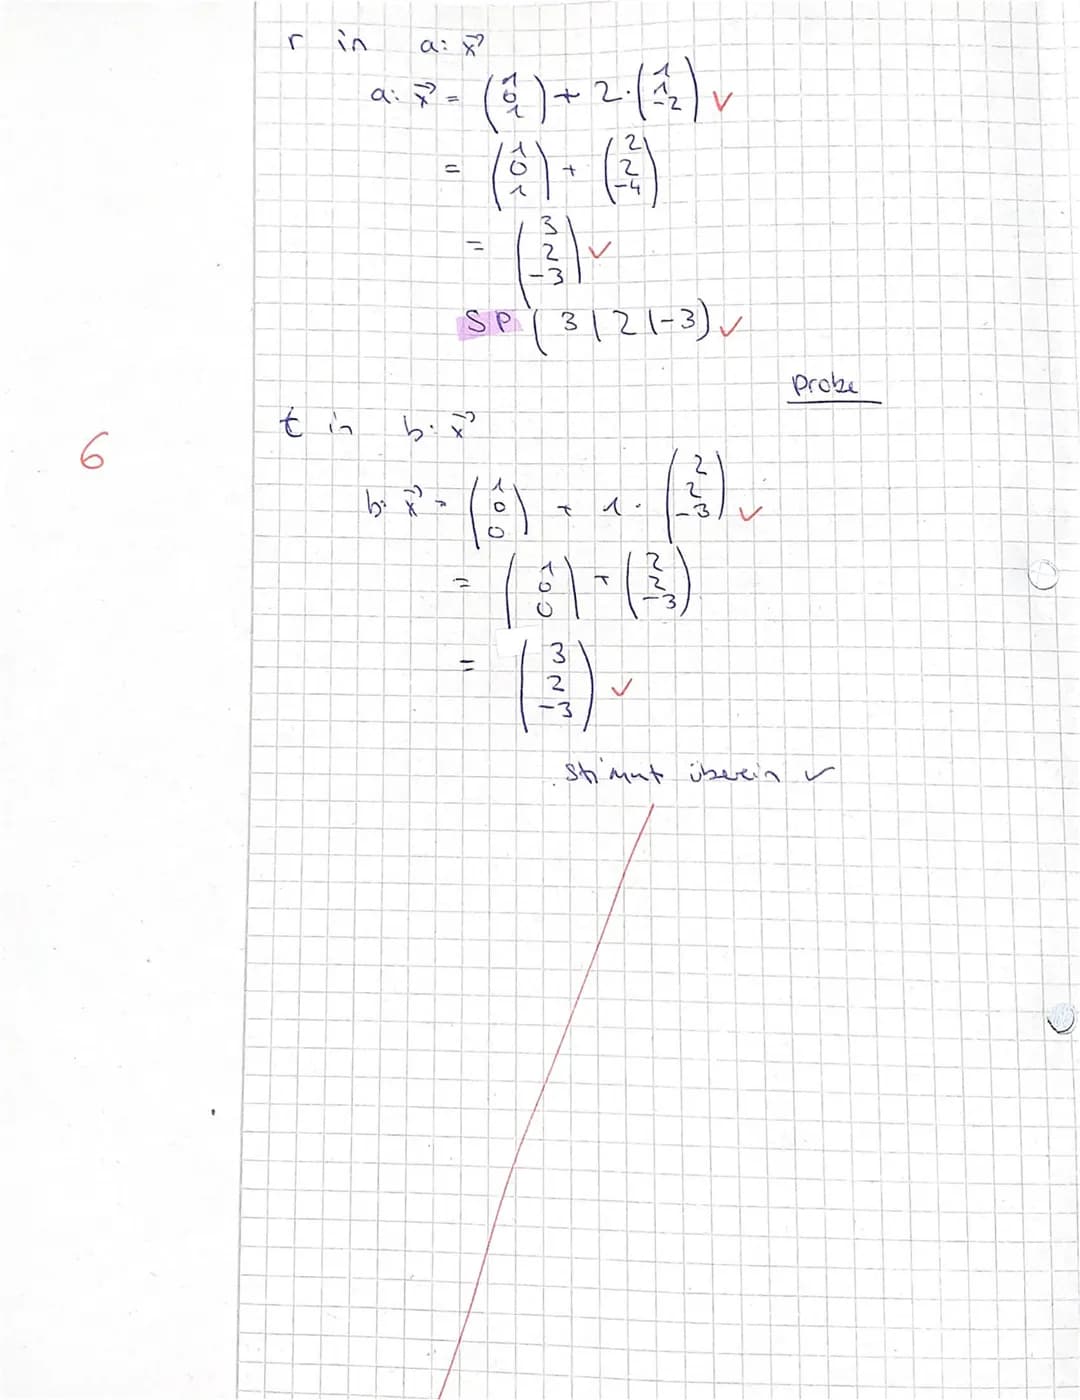 r in a: x⃗
a: x⃗ = (1 0 1) + 2 · (1 1 -2) ✓
= (1 0 1) + (2 2 -4)
= (3 2 -3) ✓
SP (3|2|-3) ✓
Probe
t in b: x⃗
6
b: x⃗ = (1 0 0) + 1 · (2 2 -3) ✓
= (1 0 0) + (2 2 -3)
= (3 2 -3) ✓
stimmt überein ✓